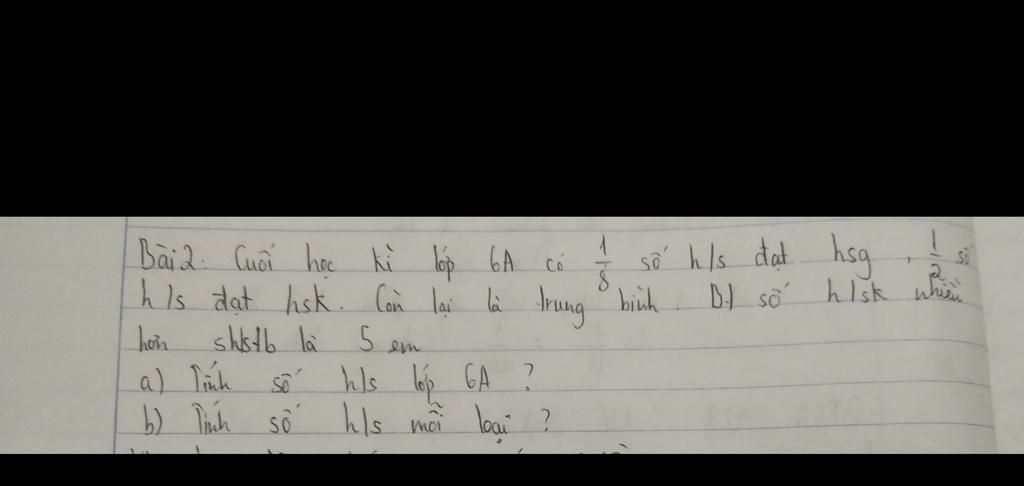 Bài 2. Cuối học kì lớp 6A có 1/8 số h/s đạt hsg, 1/2 số
h/s đạt hsk. Còn lại là trung bình. Bt số h/sk nhiều
hơn shstb là 5 em
a) Tính số h/s lớp 6A ?
b) Tính số h/s mỗi loại ?